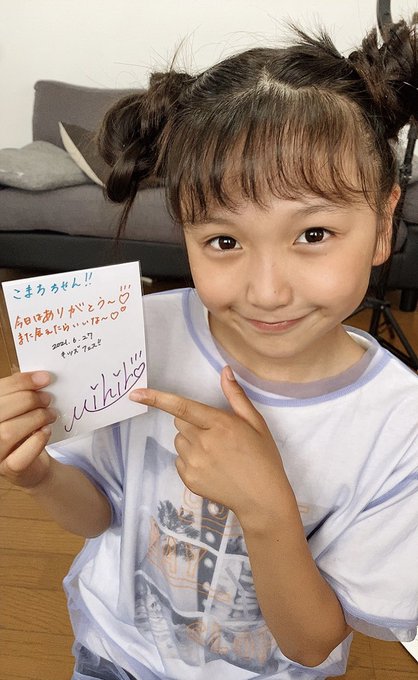 こまちちゃん!!
今日はありがとう〜!!
また会えたらいいな〜♡
2021.6.27
キッズフェス!!
Mihih♡